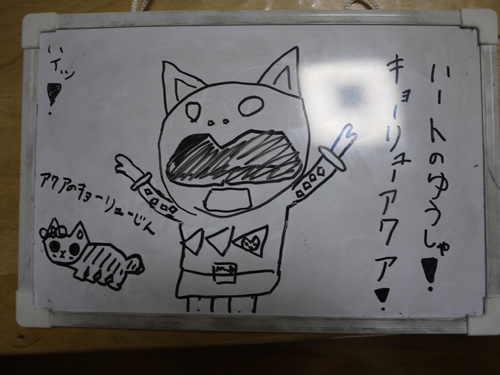 ハートのゆうしゃ!
キョーリューアクア!
いイッ!
アクアのキョーリューじん